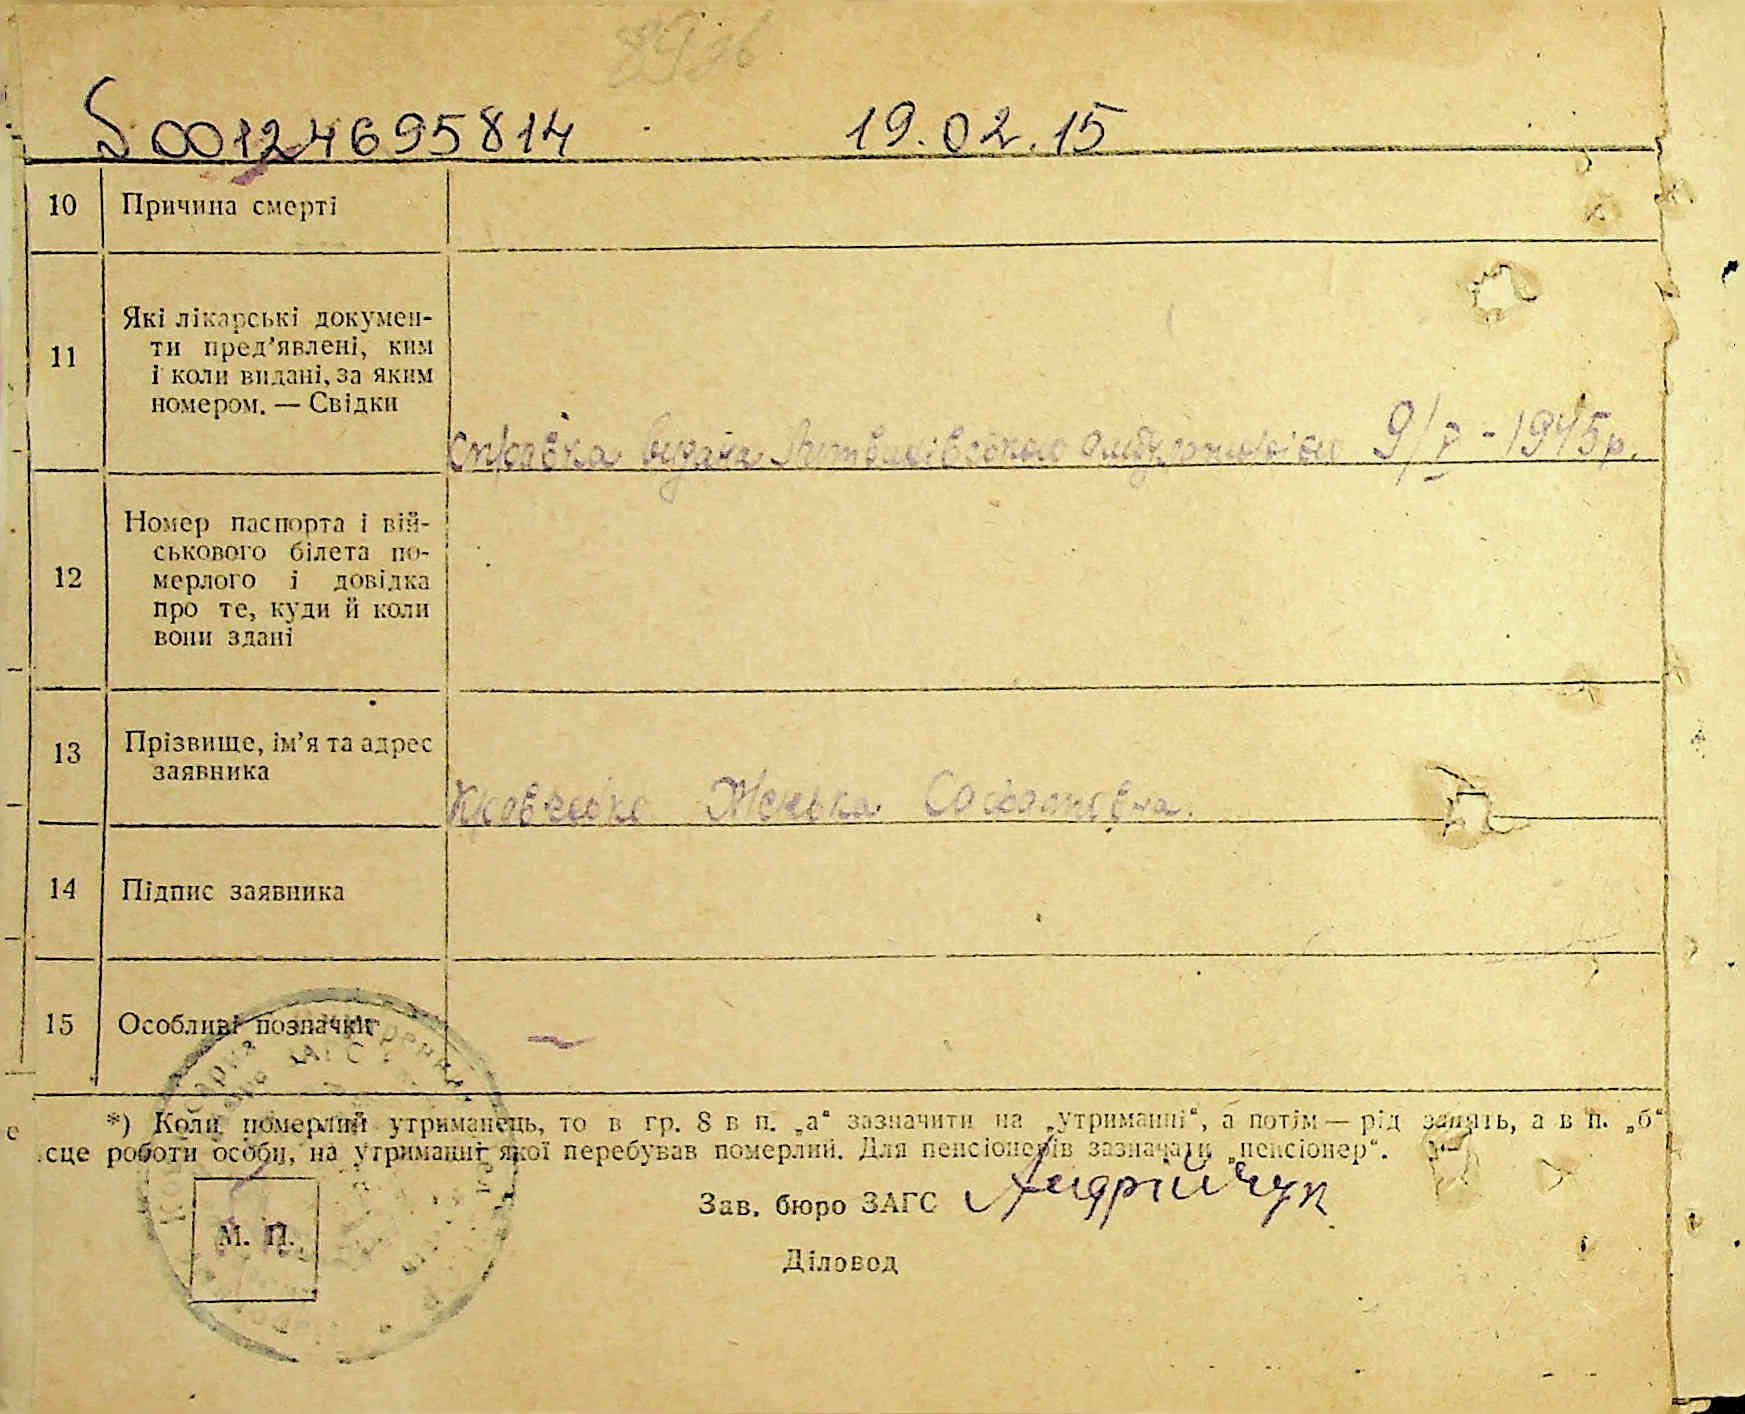 S00124695814 19.02.15
10 Причина смерті
11 Які лікарські документи пред’явлені, ким
і коли видані, за яким
номером. — Свідки
Справка видана 9/7 - 1945р.
12 Номер паспорта і військового білета померлого і довідка
про те, куди й коли
вони здані
13 Прізвище, ім’я та адрес
заявника
14 Підпис заявника
15 Особливі позначки
*) Коли померлий утриманець, то в гр. 8 в п. „а“ зазначити на „утриманні“, а потім — рід занять, а в п. „б“
сце роботи особи, на утриманні якої перебував померлий. Для пенсіонерів зазначати „пенсіонер“.
Зав. бюро ЗАГС Андрійчук
М. П.
Діловод